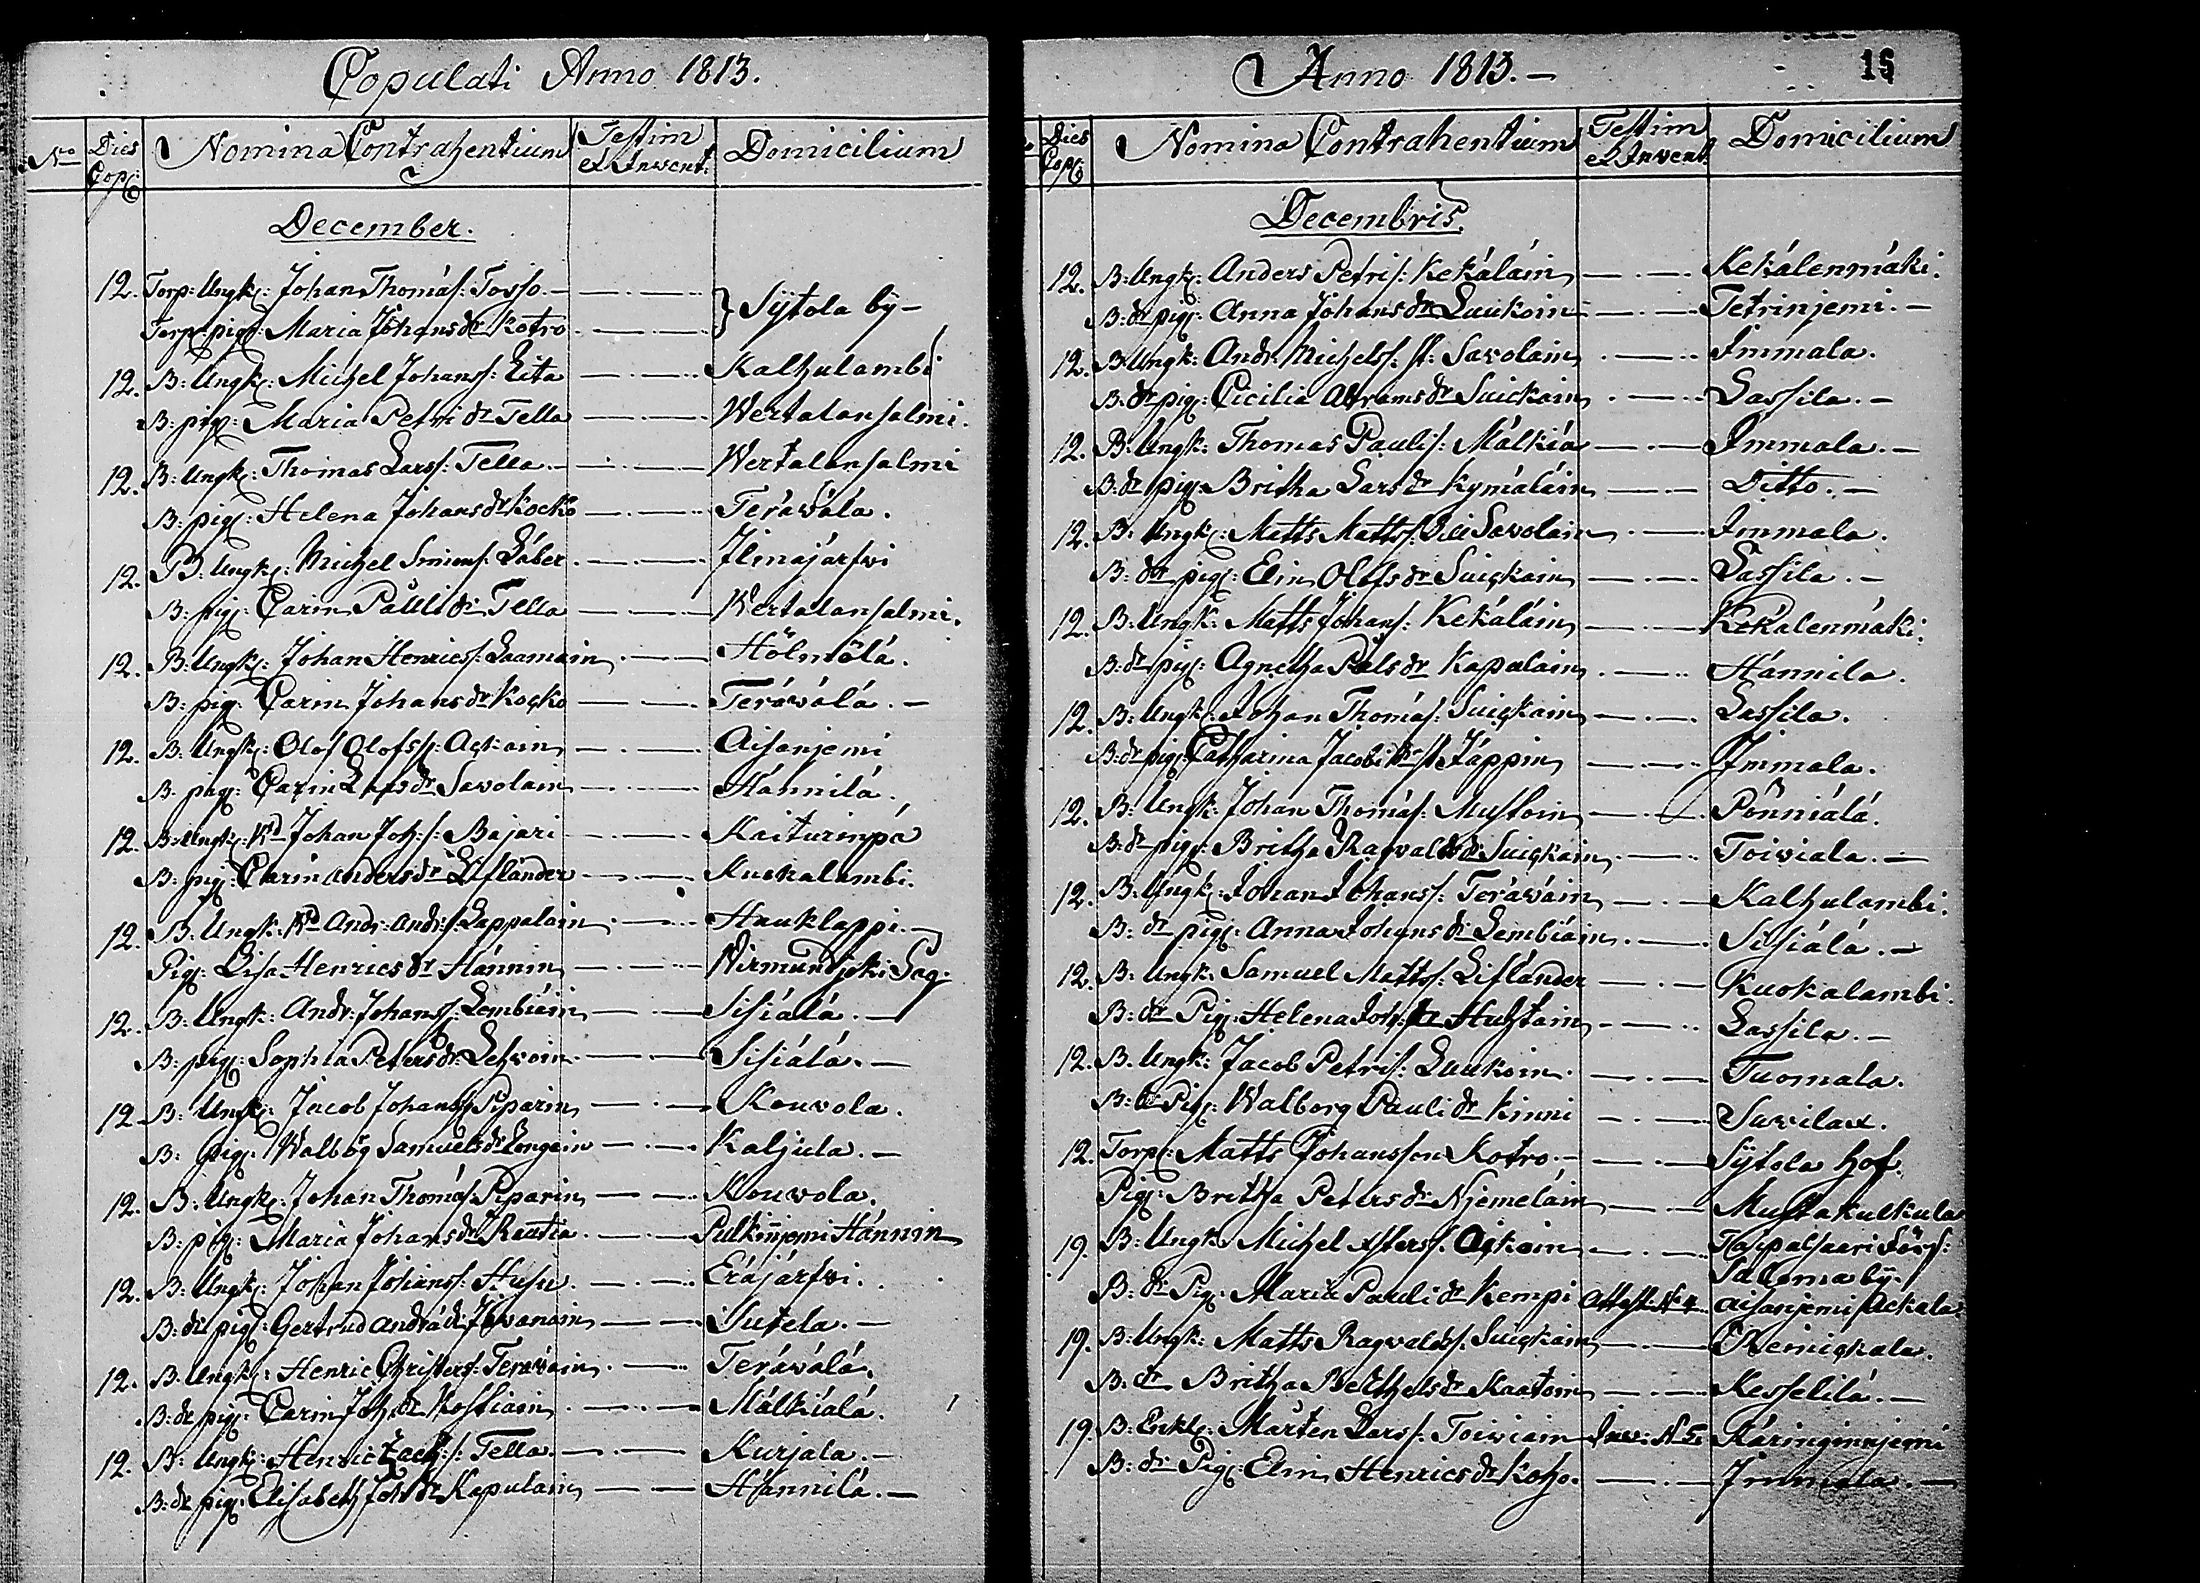 Copulati Anno 1813.
No Dies Cop: Nomina Contrahentium Testim et Invent: Domicilium
December.
12. Torp: Ungk: Johan Thomás: Torsso.
Torp: pig: Maria Johans dr Kotro } Sÿtola bÿ
12. B: Ungk: Michel Johans: Eita Kalhulambi
B: pig: Maria Petri dr Tella Wertalansalmi.
12. B: Ungk: Thomas Larss: Tella Wertalansalmi
B: pig: Helena Johans dr Kocko Teráwálá.
12. B: Ungk: Michel Simons: Láber Ilmajárfwi
B: pig: Carin Pauli dr Tella Wertalansalmi.
12. B: Ungk: Johan Henrics: Laamain Hölmölá.
B: pig: Carin Johans dr Kocko Teráwálá.
12. B: Ungk: Olof Olofss: Ackain Aisanjemi
B. pig: Carin dr Savolain Hánnilá.
12. B: Ungk: Johan Joh: s: Bajari Kaiturinpá
B: pig: Carin Anders dr Liflánder Kuokalambi.
12. B: Ungk: Andr: Andr: s: Lappalain Hauklappi.
Pig: Lisa Henrics dr Hánnin
12. B: Ungk: Andr: Johanss: Lembiáin Sisiálá.
B: pig: Sophia Peters dr Lehwoin Sisiálá.
12 B: Ungk: Jacob Johans: Piparin Kouvola.
B: pig: Walbög Samuels dr Kaljula.
12. B: Ungk: Johan Thomás: Piparin Kouvola.
B: pig: Maria Johans dr Raatia Pulkinjemi Hánnin
12. B: Ungk: Johan Johans: Husu Erájárfwi.
B: dr pig: Gertrud Andrá dr Iowanain Sutela.
12. B: Ungk: Henric Christers: Teráwáin Teráwálá.
B: dr pig: Carin Joh: dr Kostiain Málkiálá.
12. B: Ungk: Henric Zach: s: Tella Kurjala.
B: dr pig: Elisabeth Joh: dr Kapulain Hánnilá.
Anno 1813. 15
Dies Cop: Nomina Contrahentium Testim et Invent: Domicilium
Decembris.
12. B: Ungk: Anders Petris: Kekáláin Kekálenmáki.
B: dr pig: Anna Johans dr Laukoin Tetrinjemi.
12. B: Ungk: Andr: Michelss: Savolain Immala.
B: dr pig: Cicilia Abrams dr Suickain Lassila.
12. B: Ungk: Thomas Paulis: Málkiá Immala.
B: dr pig: Britha Lars dr Kymáláin Ditto.
12. B: Ungk: Matts Matts: Savolain Immala.
B: dr pig: Elin Olofs dr Suickain Lassila.
12. B: Ungk: Matts Johans: Kekáláin Kekálenmáki.
B: dr pig: Agnetha Påls dr Kapulain Hánnila.
12. B: Ungk: Johan Thomás: Suickain Lassila.
B: dr pig: Catharina Jacobi dr Táppin Immala.
12. B: Ungk: Johan Thomás: Mustoin Pönniálá.
B: dr pig: Britha Ragvalds dr Suickain Toiwiala.
12. B: Ungk: Johan Johans: Teráwáin Kalhulambi.
B: dr pig: Anna Johans dr Lembiáin Sisiálá.
12. B: Ungk: Samuel Matts: Liflánder Kuokalambi.
B: dr Pig: Helena Joh: dr Huhtain Lassila.
12. B. Ungk: Jacob Petris: Laukoin Tuomala.
B: dr Pig: Walborg Pauli dr Kinni Sawilax.
12. Torp: Matts Johansson Kotro Sÿtola hof.
Pig: Britha Peters dr Njemeláin Mustakulkula
19. B: Ungk: Michel Ackain Taipalsaari förs: bÿ.
B: dr Pig: Maria Pauli dr Kempi Attest: No 4. Aisanjemi Ackala
19. B: Ungk: Matts Ragvalds: Suickain
B: dr Britha Berthels dr Kaatoin Kesselilá.
19. B: Enkl: Mårten Lars: Toiwiain Inv: N 5. Káringinnjemi
B: dr Pig: Elin Henrics dr Koho. Immala.